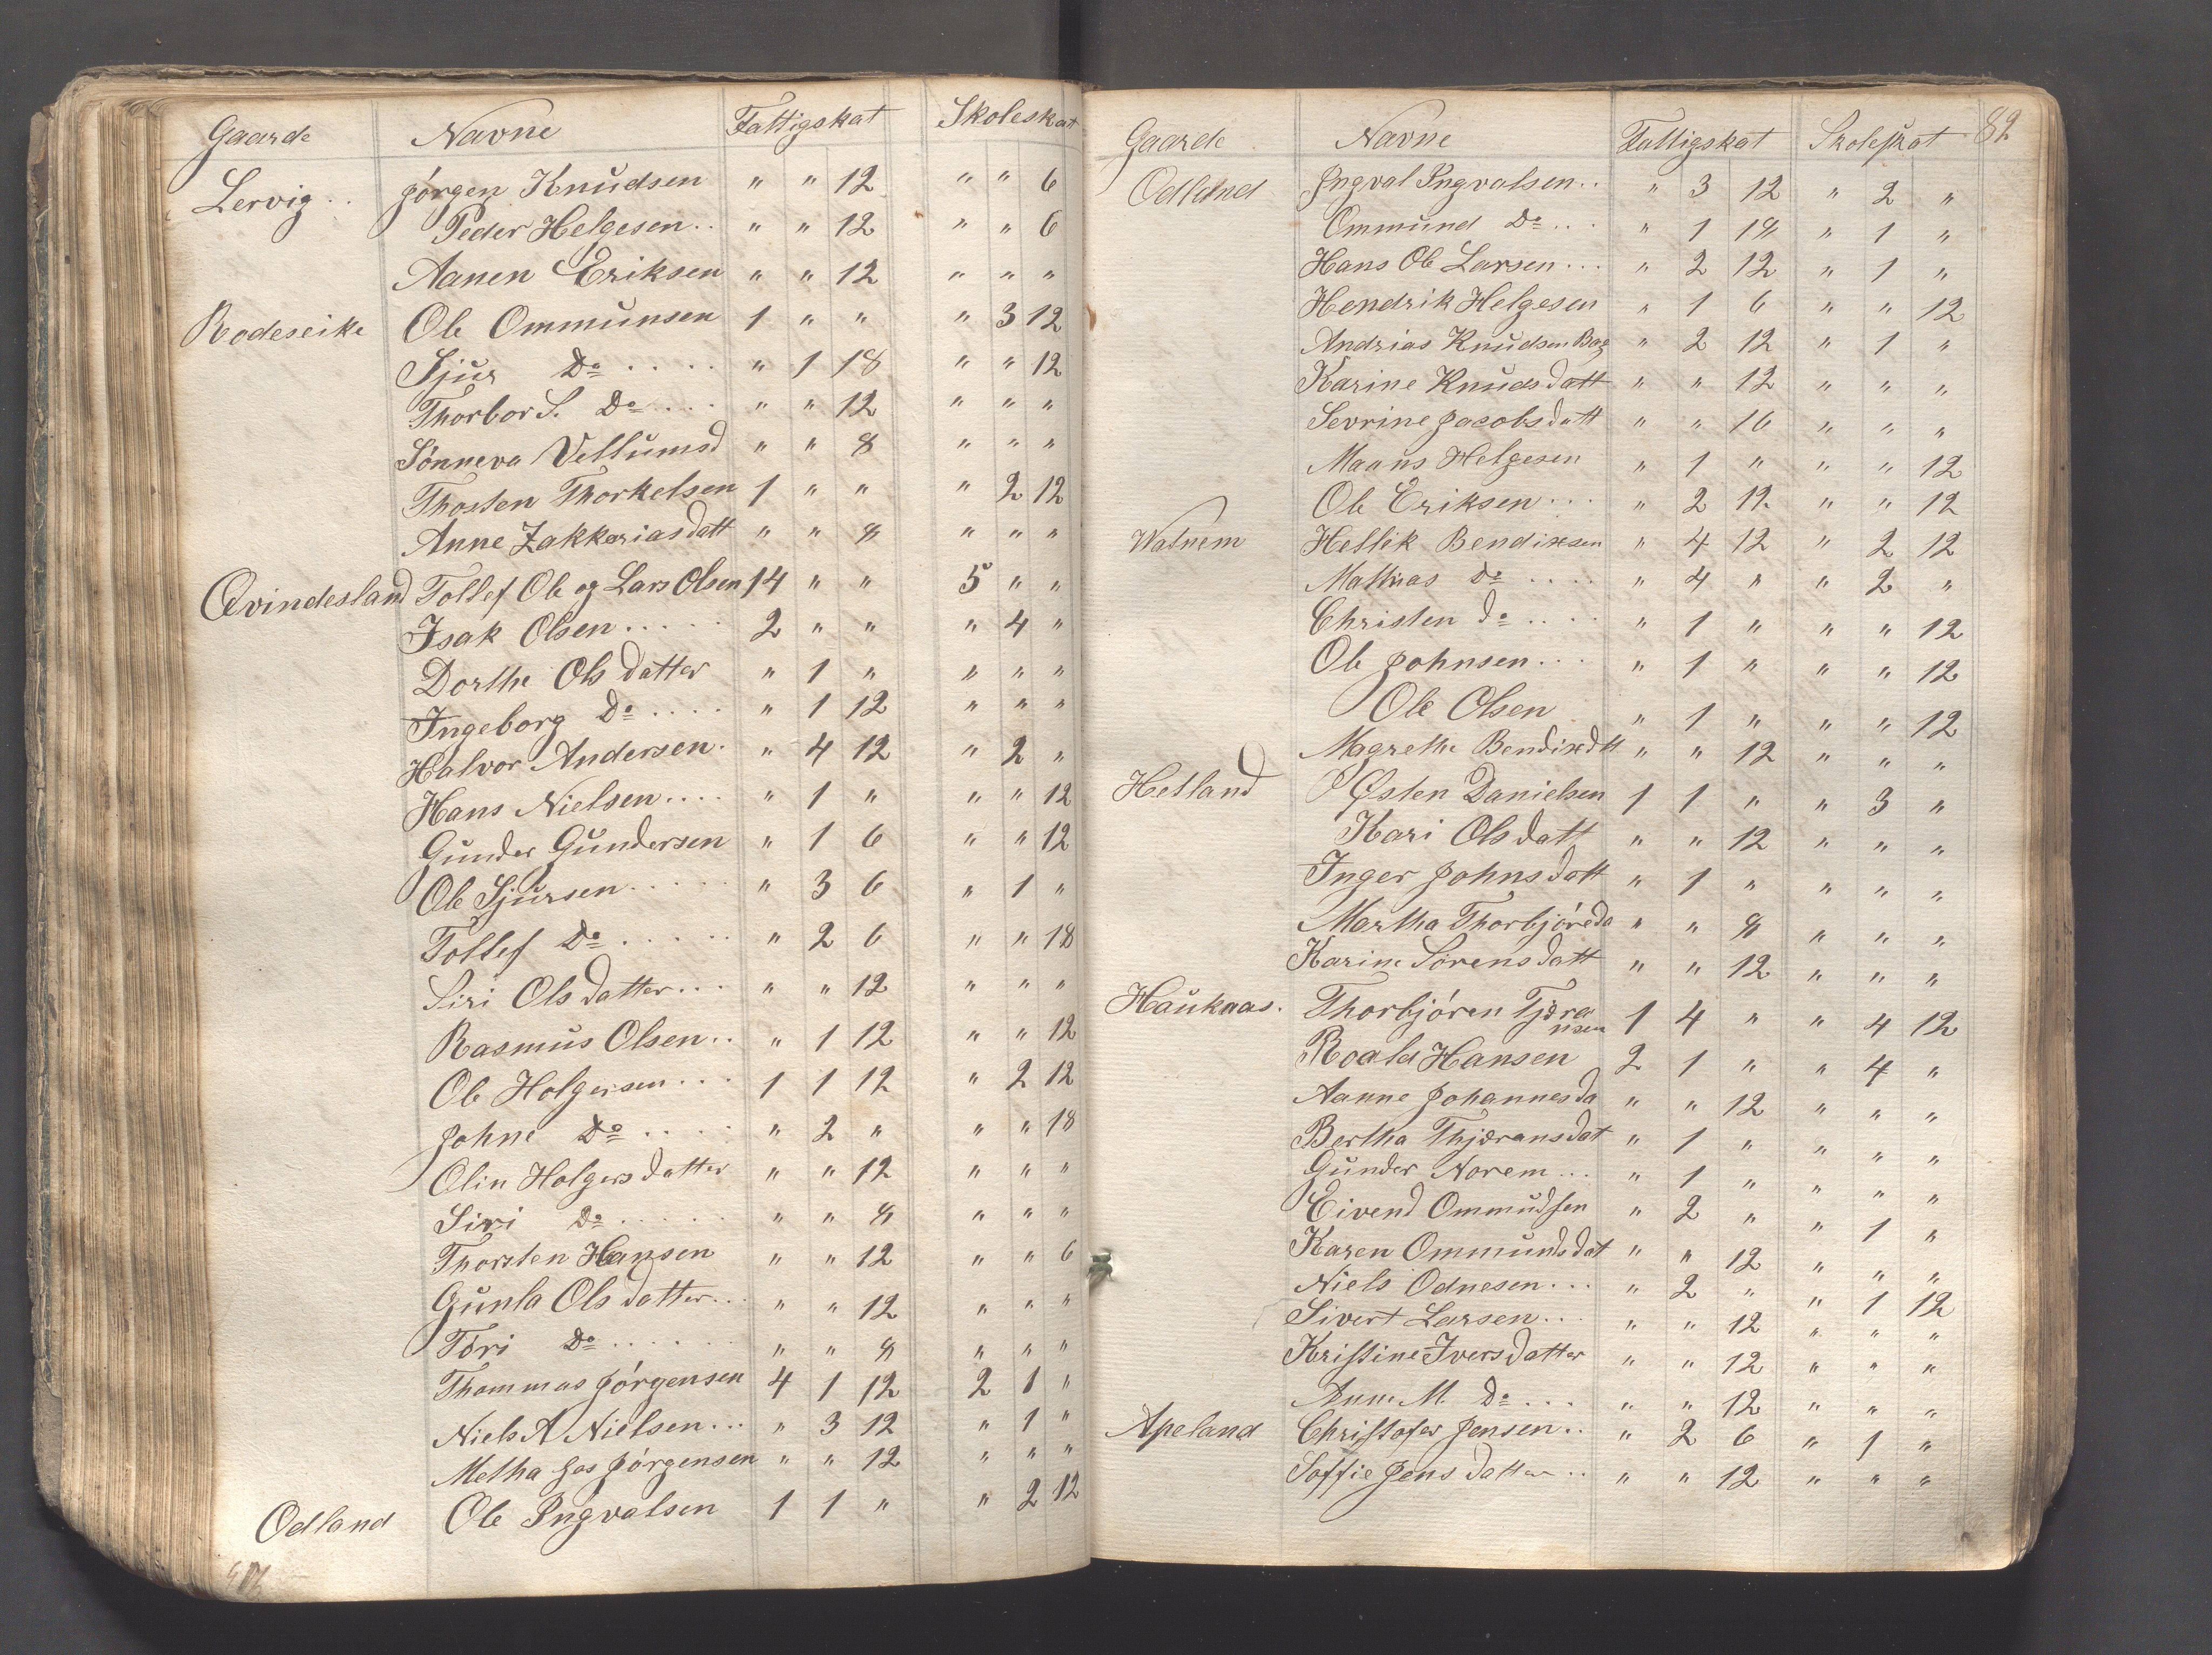 Gaarde Navne Fattigskat Skoleskat
Lervig . . Jørgen Knudsen " " 12 " " 6
Peder Helgesen . . " " 12 " " 6
Aanen Eriksen " " 12 " " "
Rodeseike Ole Ommunsen 1 " " " 3 12
Sjur Do . . . . . " 1 18 " " 12
Thorbor S. Do . . . . " " 12 " " "
Sønneva Vellumsd " " 8 " " "
Thosten Thorkelsen 1 " " " 2 12
Anne Zakkariasdatt " " 8 " " "
Qvindesland Tollef Ole og Lars Olsen 14 " " 5 " "
Isak Olsen . . . . . 2 " " " 4 "
Dorthe Ols datter " 1 " " " "
Ingeborg Do . . . . " 1 12 " " "
Halvor Andersen . " 4 12 " 2 "
Hans Nielsen . . . . " 1 " " " 12
Gunder Gundersen " 1 6 " " 12
Ole Sjursen . . . . . " 3 6 " 1 "
Tollef Do . . . . . " 2 6 " " 18
Siri Ols datter . . . " " 12 " " "
Rasmus Olsen . . " 1 12 " " 12
Ole Holgersen . . . 1 1 12 " 2 12
Johne Do . . . . . " 2 " " " 18
Olin Holgers datter " " 12 " " "
Siri Do . . . . . " " 8 " " "
Thorsten Hansen " " 12 " " 6
Gunla Ols datter . . . " " 12 " " "
Tori Do . . . . . " " 8 " " "
Thommas Jørgensen 4 1 12 2 1 "
Niels A Nielsen . . . " 3 12 " 1 "
Metha hos Jørgensen " " 12 " " "
Odland Ole Ingvalsen 1 1 " " 2 12
Gaarde Navne Fattigskat Skoleskat 82
Odland Ingval Ingvalsen . . " 3 12 " 2 "
Ommund Do . . . " 1 18 " 1 "
Hans Ole Larsen . . . " 2 12 " 1 "
Hendrik Helgesen " 1 6 " " 12
Andrias Knudsen Bag " 2 12 " 1 "
Karine Knuds datt " " 12 " " "
Sevrine Jacobs datt " " 16 " " "
Maans Helgesen " 1 " " " 12
Ole Eriksen . . . " 2 12 " " 12
Watnem Hellik Bendixsen " 4 12 " 2 12
Mathias Do . . . . " 4 " " 2 "
Christen do . . . . " 1 " " " 12
Ole Johnsen . . . " 1 " " " 12
Ole Olsen " 1 " " " 12
Magrethe Bendixdtt " " 12 " " "
Hetland Østen Danielsen 1 1 " " 3 "
Kari Ols datt " " 12 " " "
Inger Johns datt " 1 " " " "
Martha Thorbjørsda " " 8 " " "
Karine Sørens datt " " 12 " " "
Hauknaas . Thorbjøren Tjæra
nsen 1 4 " " 4 12
Roald Hansen 2 1 " " 4 "
Aanne Johannesda " " 12 " " "
Bertha Thjærans dat " 1 " " " "
Gunder Norem . . . " 1 " " " "
Eivend Ommudsen " 2 " " 1 "
Karen Ommunds dat " " 12 " " "
Niels Odnesen . . . " 2 " " 1 12
Sivert Larsen . . . " " 12 " " "
Kristine Ivers datter " " 12 " " "
Anne M. Do . . . " " 12 " " "
Apeland Christofer Jensen . . " 2 6 " 1 "
Soffie Jens datter . . " " 12 " " "